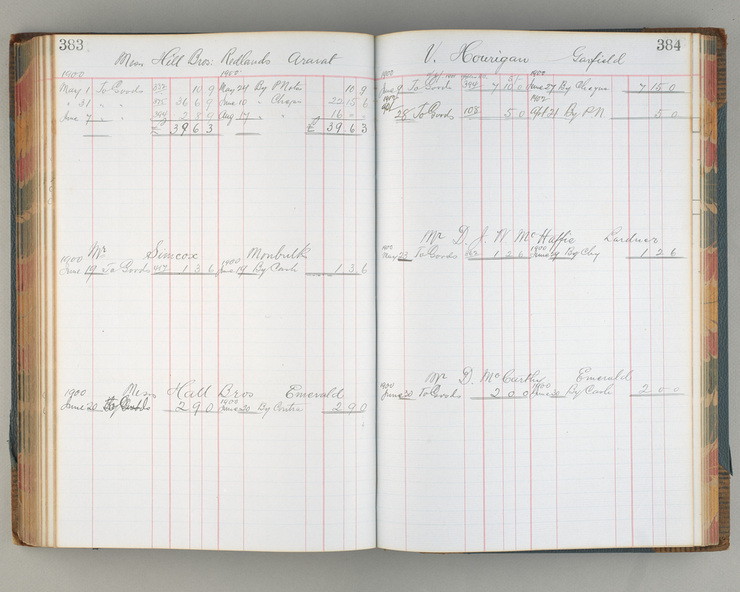 383
Hill Bros. Redlands Ararat
1900 1900
May 1 To Goods 10 9 May 24 By P Notes 10 9
" 31 " " 36 6 9 June 10 " Cheque 22 15 6
June 7 " " 2 8 9 Aug 17 " " 16 " "
£ 39 6 3 £ 39 6 3
Mr Simcox Monbulk
1900 1900
June 19 To Goods 417 1 3 6 June 19 By Cash 1 3 6
Mess Hall Bros Emerald
1900 1900
June 20 To Goods 2 9 0 June 20 By Contra 2 9 0
384
V. Hourigan Garfield
1900 1900
June 9 To Goods 394 7 15 0 June 27 By Cheque 7 15 0
28 To Goods 108 5 0 Apl 21 By P N 5 0
Mr D. J. W. McHaffie Lardner
1900 1900
May 23 To Goods 1 2 6 June 19 By Chq 1 2 6
Mr D. McCarthy Emerald
1900 1900
June 20 To Goods 2 0 0 June 20 By Cash 2 0 0